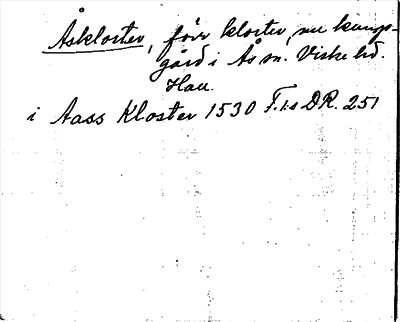 Åskloster, förr kloster, nu kungs-
gård i Ås sn. Viske hd.
Hall.
i Aass Kloster 1530 F.1s DR. 251